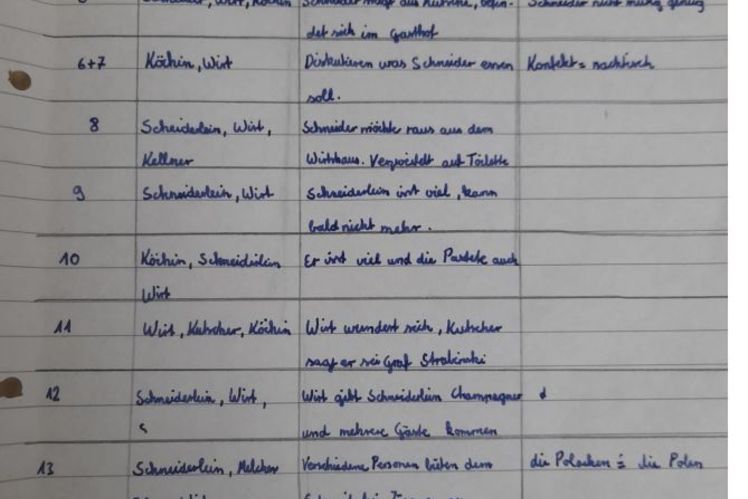 det sich im Gasthof
6+7 Köchin, Wirt Diskutieren was Schneider essen Konfekt = nachtisch
soll.
8 Scheiderlein, Wirt, Schneider möchte raus aus dem
Kellner Wirtshaus. Verzweifelt auf Toilette
9 Schneiderlein, Wirt Schneiderlein isst viel, kann
bald nicht mehr.
10 Köchin, Schneiderlein Er isst viel und die Pastete auch
Wirt
11 Wirt, Kutscher, Köchin Wirt wundert sich, Kutscher
sagt er sei Graf Strabinski
12 Schneiderlein, Wirt, Wirt gibt Schneiderlein Champagner
und mehrere Gäste kommen
13 Schneiderlein, Melcher Verschiedene Personen bieten dem die Polacken = die Polen